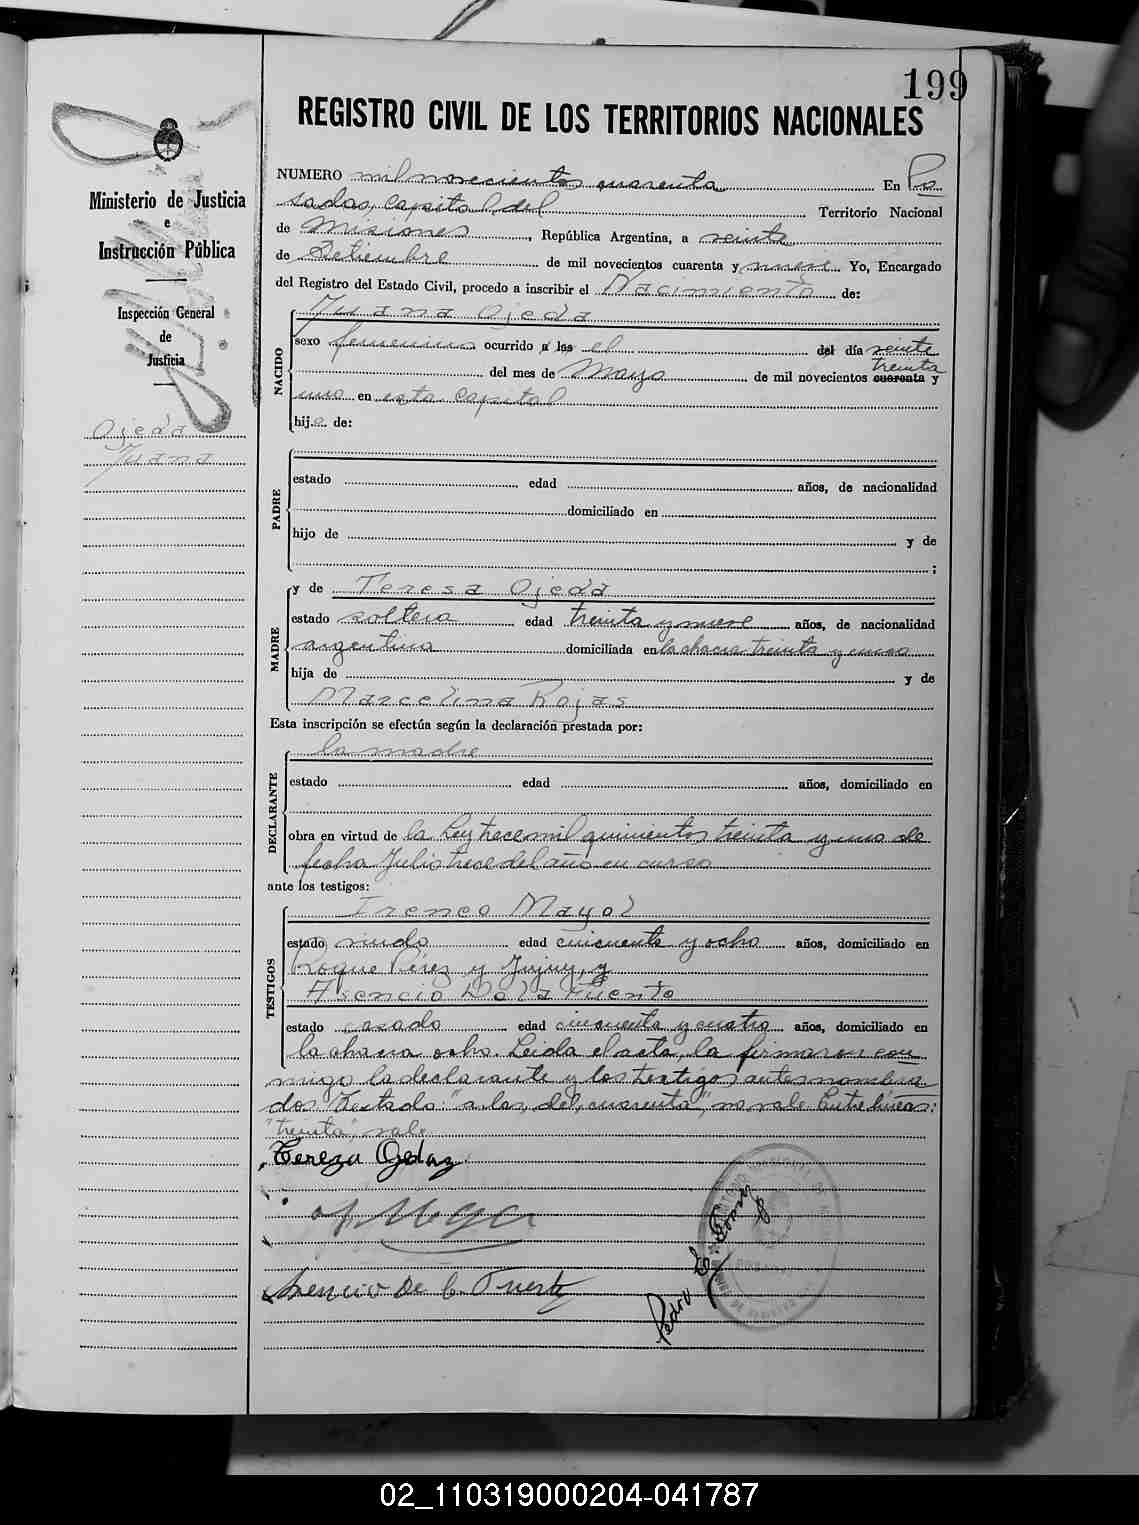 199
REGISTRO CIVIL DE LOS TERRITORIOS NACIONALES
Ministerio de Justicia
e
Instrucción Pública
Inspección General
de
Justicia
Ojeda
Juana
NUMERO mil novecientos cuarenta En Po
sadas, capital del Territorio Nacional
de Misiones, República Argentina, a veinte
de Setiembre de mil novecientos cuarenta y nueve Yo, Encargado
del Registro del Estado Civil, procedo a inscribir el Nacimiento de:
NACIDO
Juana Ojeda
sexo femenino ocurrido a las el del día veinte
treinta
del mes de Mayo de mil novecientos cuarenta y
uno en esta capital
hij.a de:
PADRE
estado edad años, de nacionalidad
domiciliado en
hijo de y de
;
MADRE
y de Teresa Ojeda
estado soltera edad treinta y nueve años, de nacionalidad
argentina domiciliada en la chacra treinta y cinco
hija de y de
Marcelina Rojas
Esta inscripción se efectúa según la declaración prestada por:
DECLARANTE
la madre
estado edad años, domiciliado en
obra en virtud de la Ley trece mil quinientos treinta y uno de
fecha Julio trece del año en curso
ante los testigos:
TESTIGOS
Ireneo Mayol
estado viudo edad cincuenta y ocho años, domiciliado en
Roque Pérez y Jujuy, y
Asencio De la Fuente
estado casado edad cincuenta y cuatro años, domiciliado en
la chacra ocho. Leida el acta, la firmaron con
migo la declarante y los testigos antes nombra
dos. Testado: "a las, del, cuarenta", no vale. Entre líneas:
"treinta", vale
Tereza Ojedaz
Asencio De la Fuente
Pedro E. Gomez
02_110319000204-041787